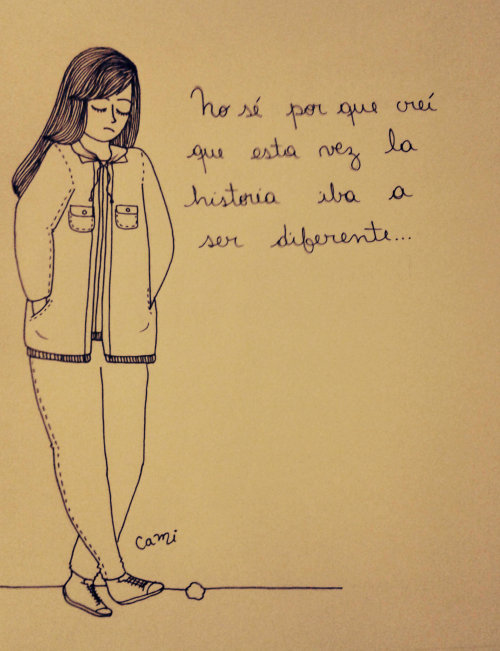 No sé por que creí
que esta vez la
historia iba a
ser diferente...
Cami